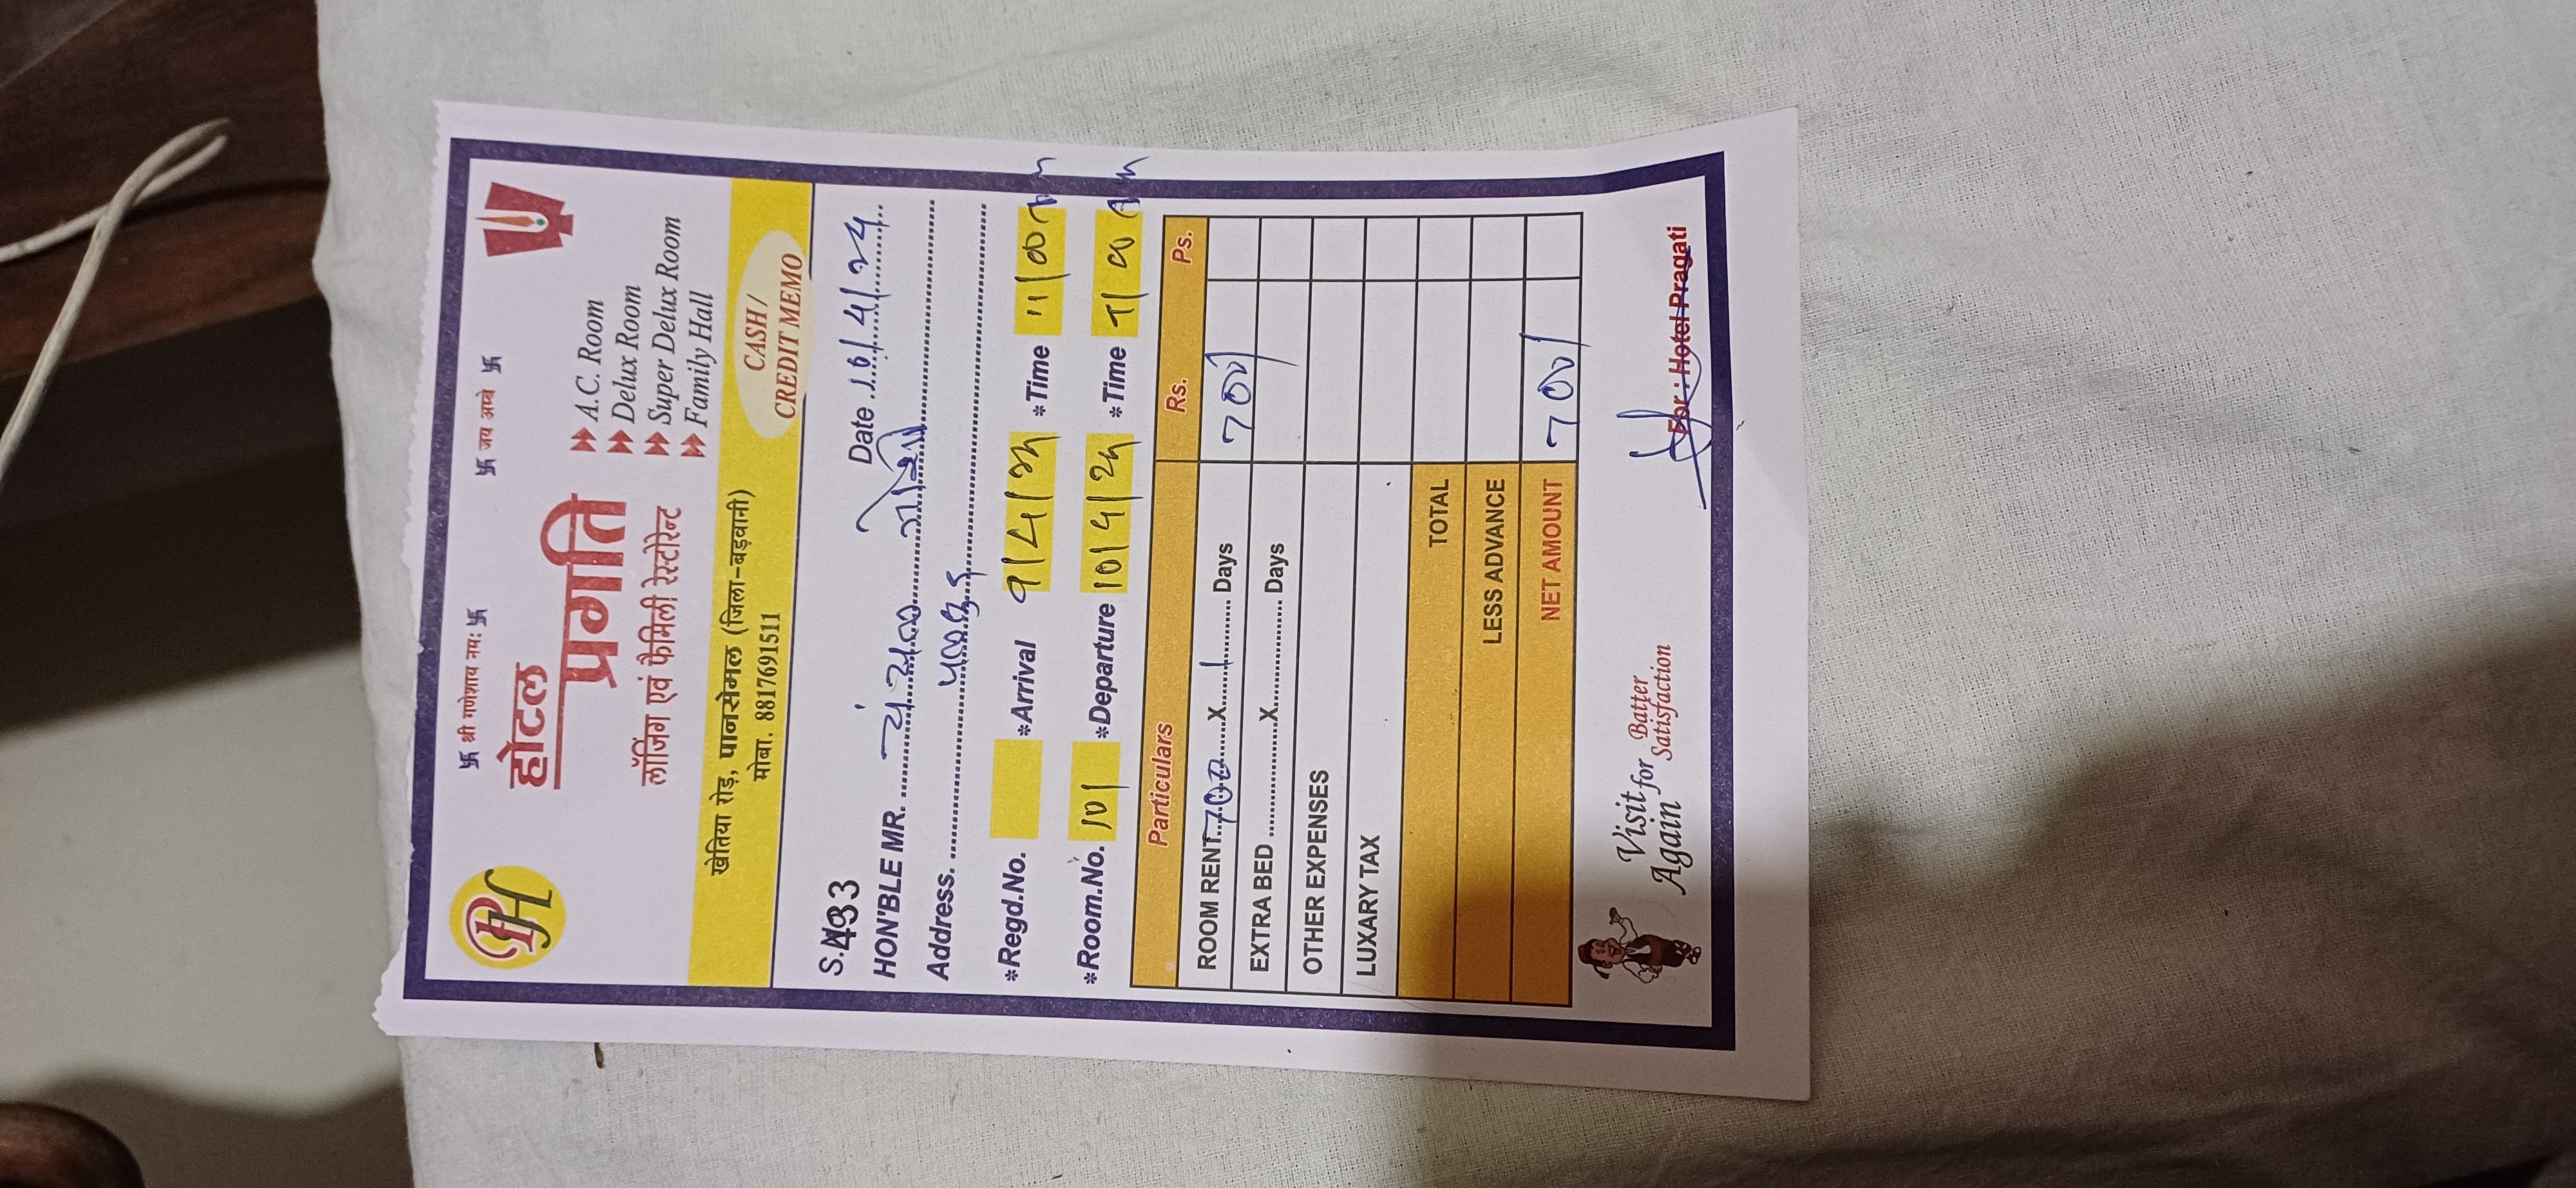 卐 श्री गणेशाय नमः 卐 卐 जय अम्बे 卐
PH
होटल
प्रगति
लॉजिंग एवं फैमिली रेस्टोरेन्ट
A.C. Room
Delux Room
Super Delux Room
Family Hall
खेतिया रोड़, पानसेमल (जिला-बड़वानी)
मोबा. 8817691511
CASH /
CREDIT MEMO
S.493 Date 10/4/24
HON'BLE MR.
Address.
*Regd.No. *Arrival 9/4/24 *Time 11/00
*Room.No. 101 *Departure 10/4/24 *Time
Particulars Rs. Ps.
ROOM RENT 700 X 1 Days 700/
EXTRA BED X Days
OTHER EXPENSES
LUXARY TAX
TOTAL
LESS ADVANCE
NET AMOUNT 700/
Visit for Batter
Again Satisfaction
For : Hotel Pragati